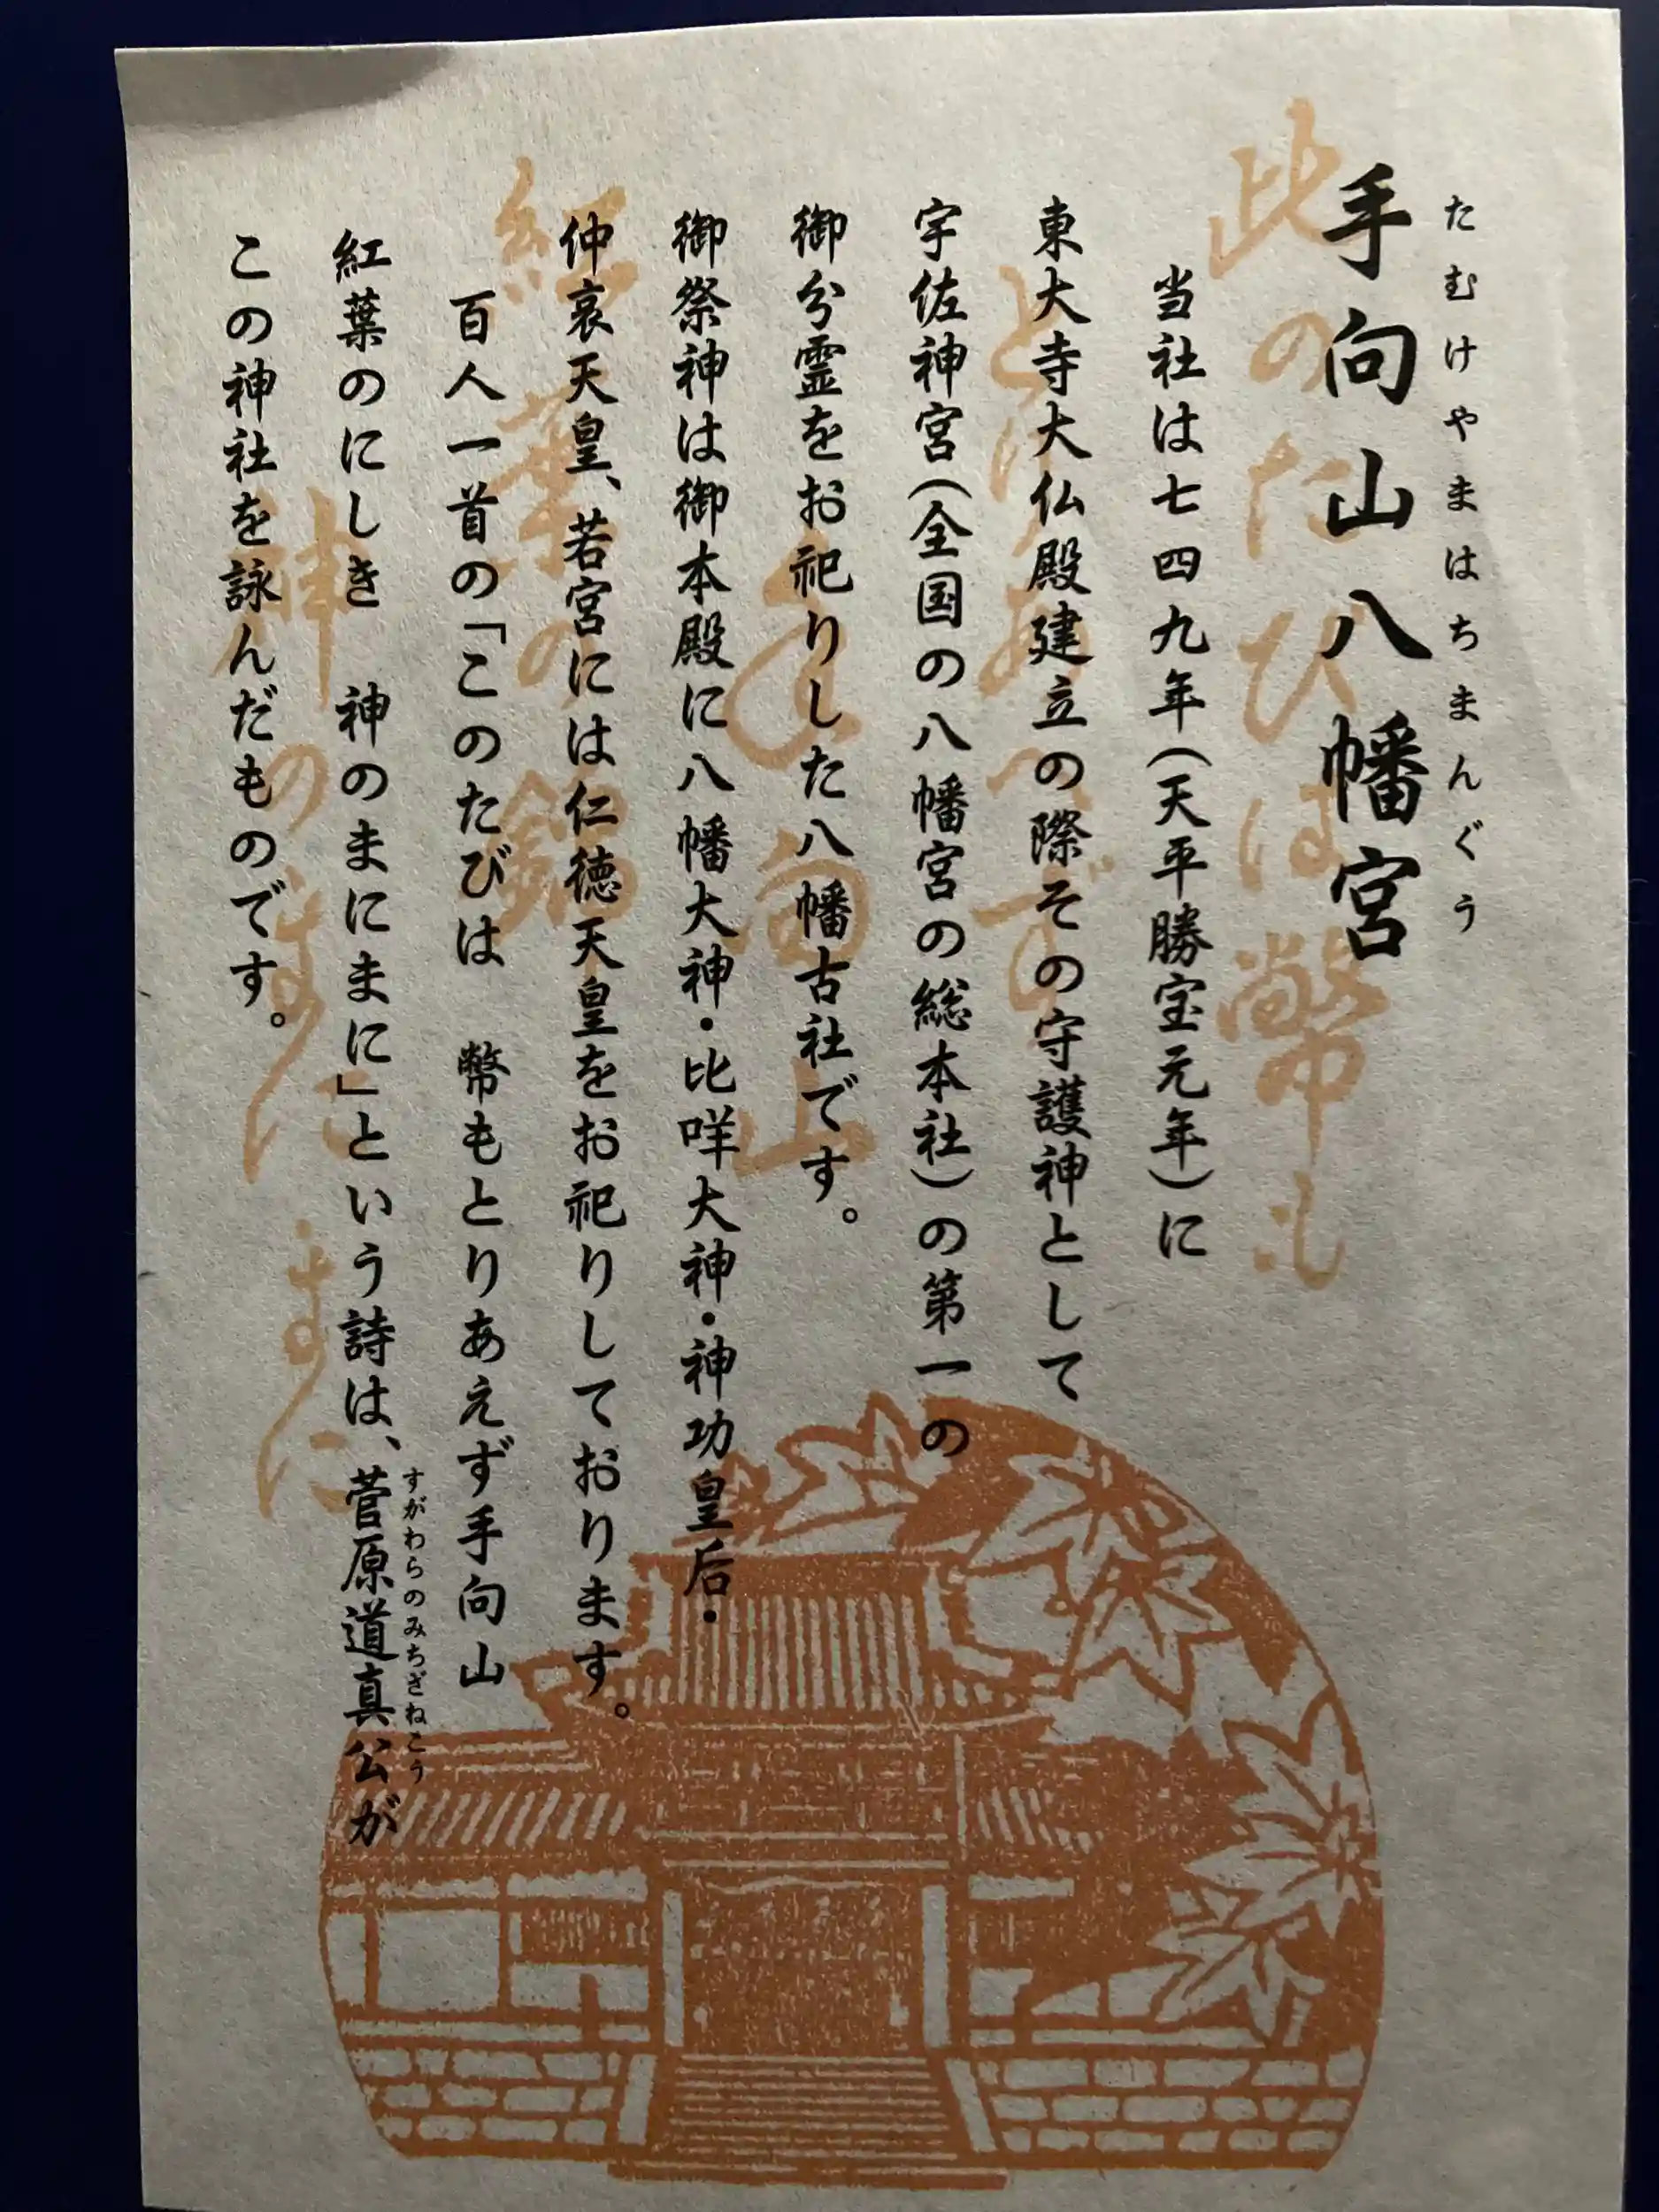 手向山八幡宮
たむけやまはちまんぐう
当社は七四九年(天平勝宝元年)に
東大寺大仏殿建立の際その守護神として
宇佐神宮(全国の八幡宮の総本社)の第一の
御分霊をお祀りした八幡古社です。
御祭神は御本殿に八幡大神・比咩大神・神功皇后・
仲哀天皇、若宮には仁徳天皇をお祀りしております。
百人一首の「このたびは 幣もとりあえず手向山
紅葉のにしき 神のまにまに」という詩は、菅原道真公が
すがわらのみちざねこう
この神社を詠んだものです。
此のたひは幣も
とりあへす
手向山
紅葉の錦
神のまにまに